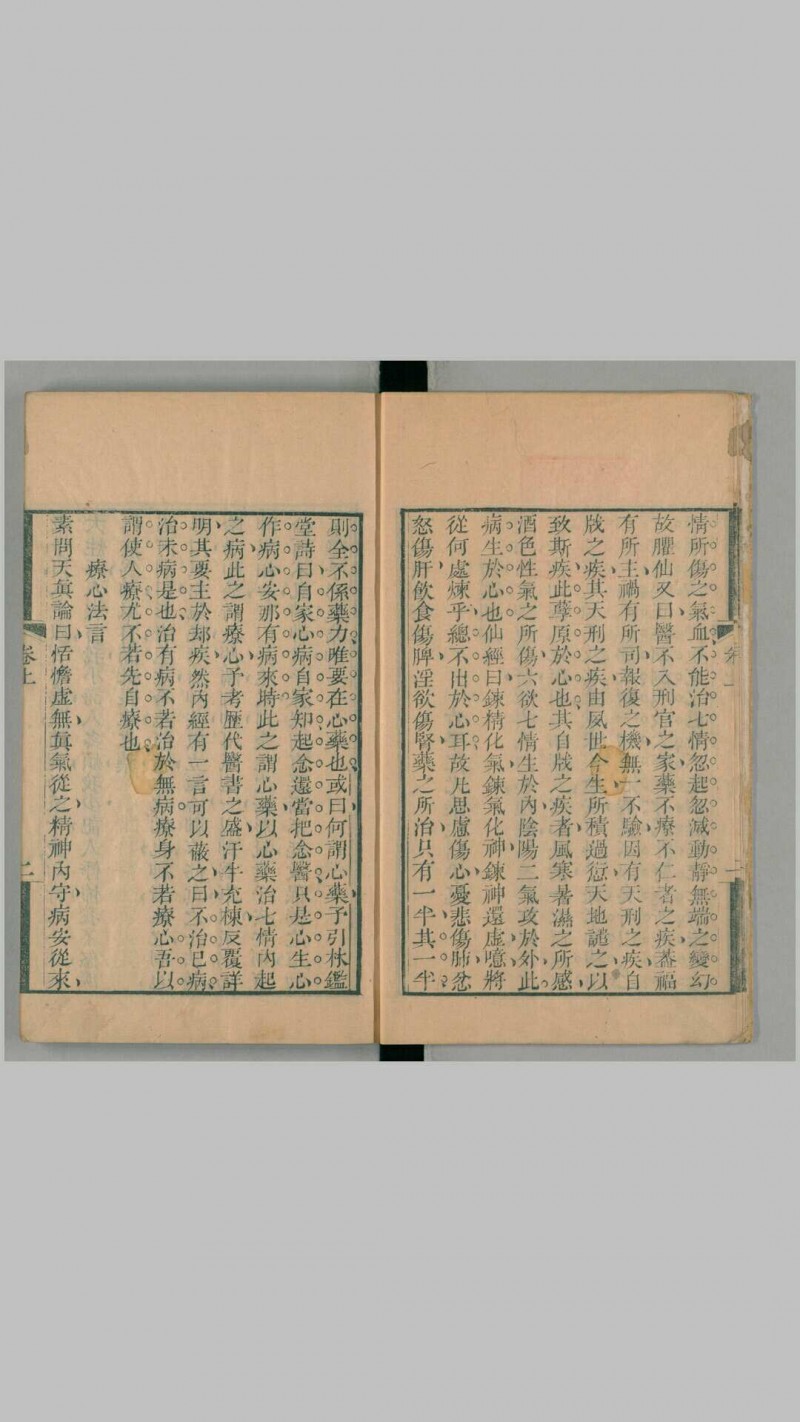 情所傷之氣血不能治七情忽起忽滅動靜無端之變幻
故臞仙又曰醫不入刑官之家藥不療不仁者之疾葢福
有所主禍有所司報復之機無一不驗因有天刑之疾自
戕之疾其天刑之疾由夙世今生所積過愆天地譴之以
致斯疾此孽原於心也其自戕之疾者風寒暑濕之所感
酒色性氣之所傷六欲七情生於內陰陽二氣攻於外此
病生於心也仙經曰鍊精化氣鍊氣化神鍊神還虛噫將
從何處煉乎總不出於心耳故凡思慮傷心憂悲傷肺忿
怒傷肝飮食傷脾淫欲傷腎藥之所治只有一半其一半
則全不係藥力唯要在心藥也或曰何謂心藥予引林鑑
堂詩曰自家心病自家知起念還當把念醫只是心生心
作病心安那有病來時此之謂心藥以心藥治七情內起
之病此之謂療心予考歷代醫書之盛汗牛充棟反覆詳
明其要主於却疾然內經有一言可以蔽之曰不治已病
治未病是也治有病不若治於無病療身不若療心吾以
謂使人療尤不若先自療也
療心法言
素問天眞論曰恬憺虛無眞氣從之精神內守病安從來
卷上
二